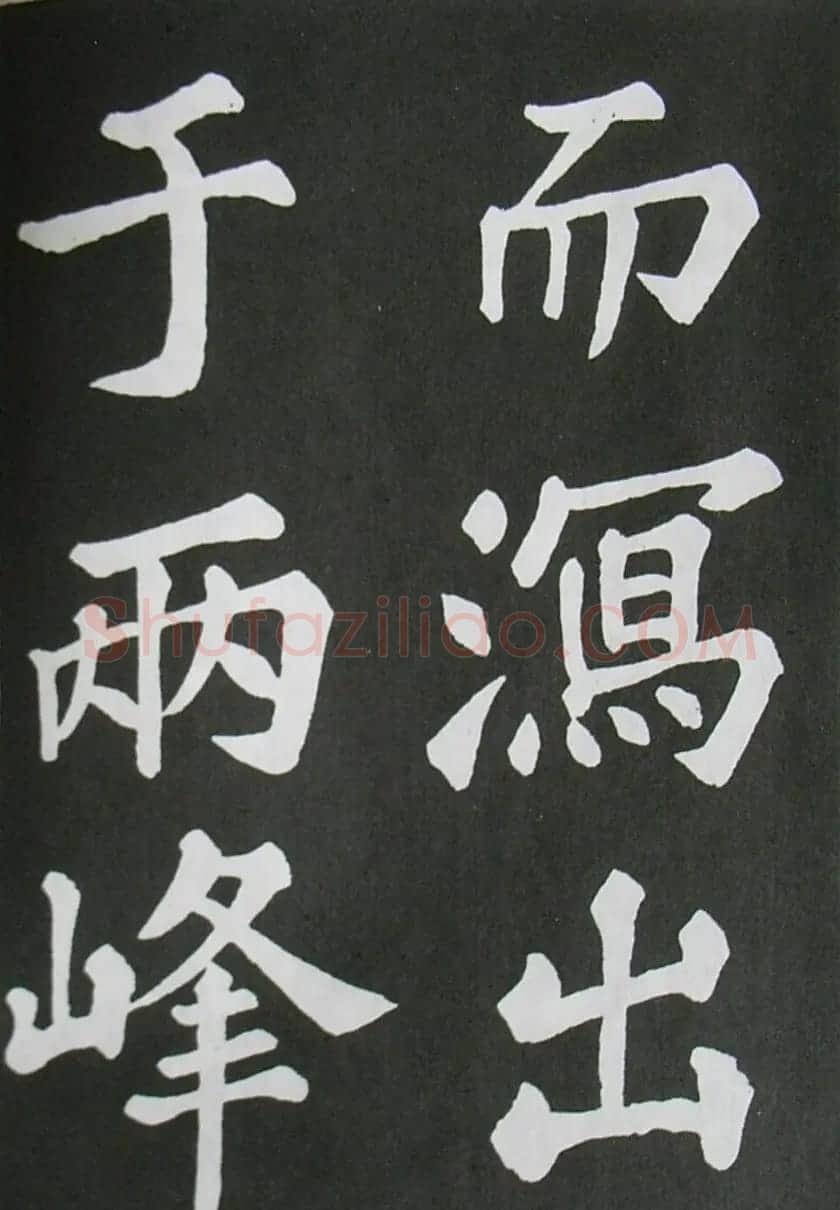 而瀉出
于兩峰
Shufaziliao.COM